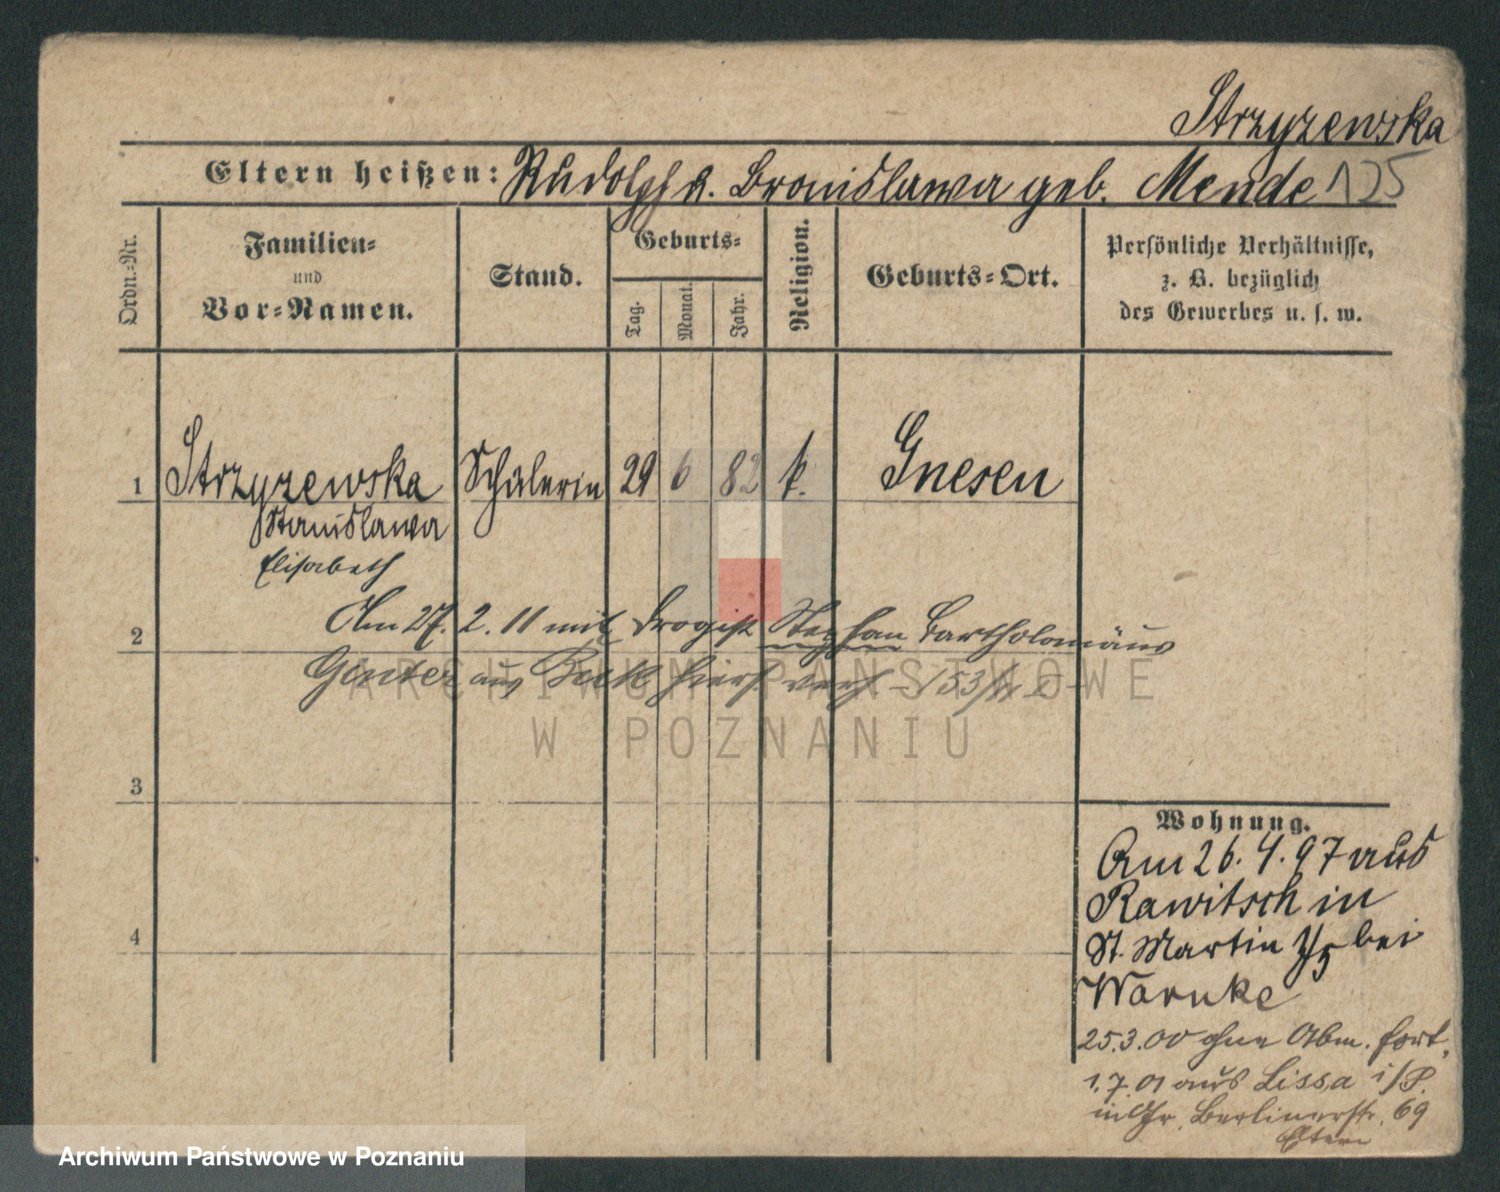 Strzyzewska
Eltern heißen: Rudolph u. Bronislawa geb. Mende 125
Ordn.-Nr.
Familien-
und
Vor-Namen.
Stand.
Geburts-
Tag.
Monat.
Jahr.
Religion.
Geburts-Ort.
Persönliche Verhältnisse,
z. B. bezüglich
des Gewerbes u. s. w.
1 Strzyzewska Schülerin 29 6 82 k. Gnesen
Stanislawa
Elisabeth
2 Am 27. 2. 11 mit Drogist Stephan Bartholomäus
Ginter aus hier verh 153/11
ARCHIWUM PAŃSTWOWE
W POZNANIU
3
4
Wohnung.
Am 26. 4. 97 aus
Rawitsch in
St. Martin bei
Warnke
25.3.00 ohne Abm. fort.
1.7.01 aus Lissa i/P.
in Gr. Berlinerstr. 69
Eltern
Archiwum Państwowe w Poznaniu